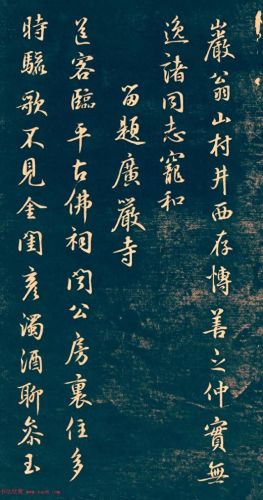 巖翁山村井西存博善之仲實無
逸諸同志寵和
留題廣嚴寺
送客臨平古佛祠閉公房裏住多
時驪歌不見金閨彦濁酒聊參玉